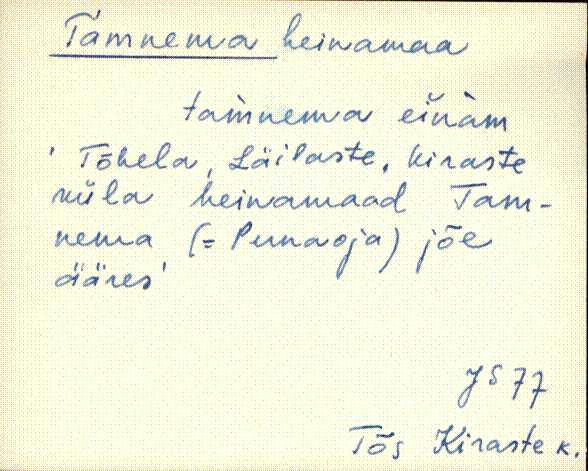 Tàmnema heinamaa
tam̀nema eiǹàm
'Tõhela, Läilaste, Kiraste
küla heinamaad Tam-
nema (= Punaoja) jõe
ääres'
JS 77
Tõs Kiraste k.